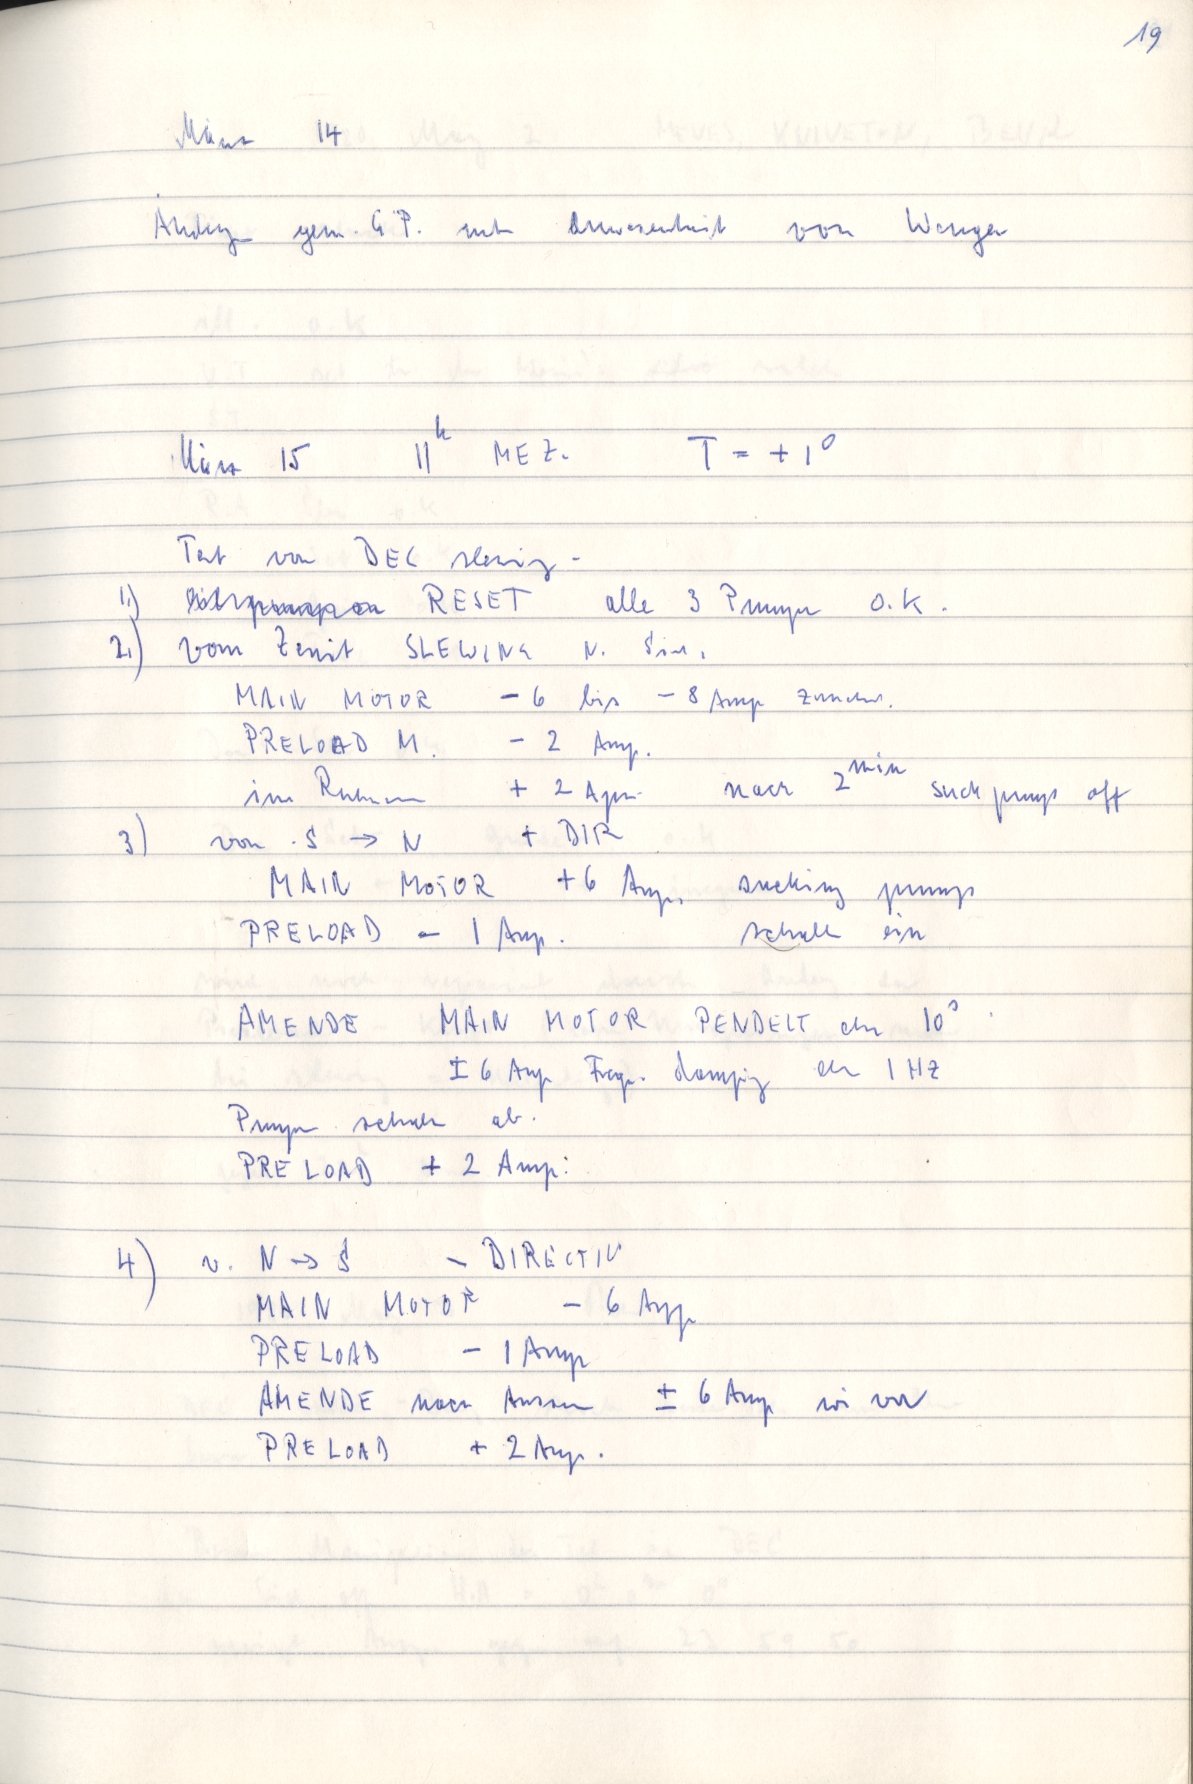 19
März 14
gem. G.P. mit Anwesenheit von
März 15 11h MEZ. T = +1°
Test von DEC slewing.
1.) RESET alle 3 Pumpen O.K.
2.) vom Zenit SLEWING n. Süd.
MAIN MOTOR - 6 bis - 8 Amp
PRELOAD M. - 2 Amp.
im + 2 Apm nach 2min suck pumps off
3) von S → N + DIR
MAIN MOTOR +6 Amp. sucking pumps
PRELOAD - 1 Amp. schalt ein
AM ENDE MAIN MOTOR PENDELT ca 10s.
± 6 Amp Freq. ca 1 HZ
Pumpen schalt ab.
PRELOAD + 2 Amp.
4) v. N → S - DIRECTIV
MAIN MOTOR - 6 Amp
PRELOAD - 1 Amp
AM ENDE nach ± 6 Amp wie vor
PRELOAD + 2 Amp.